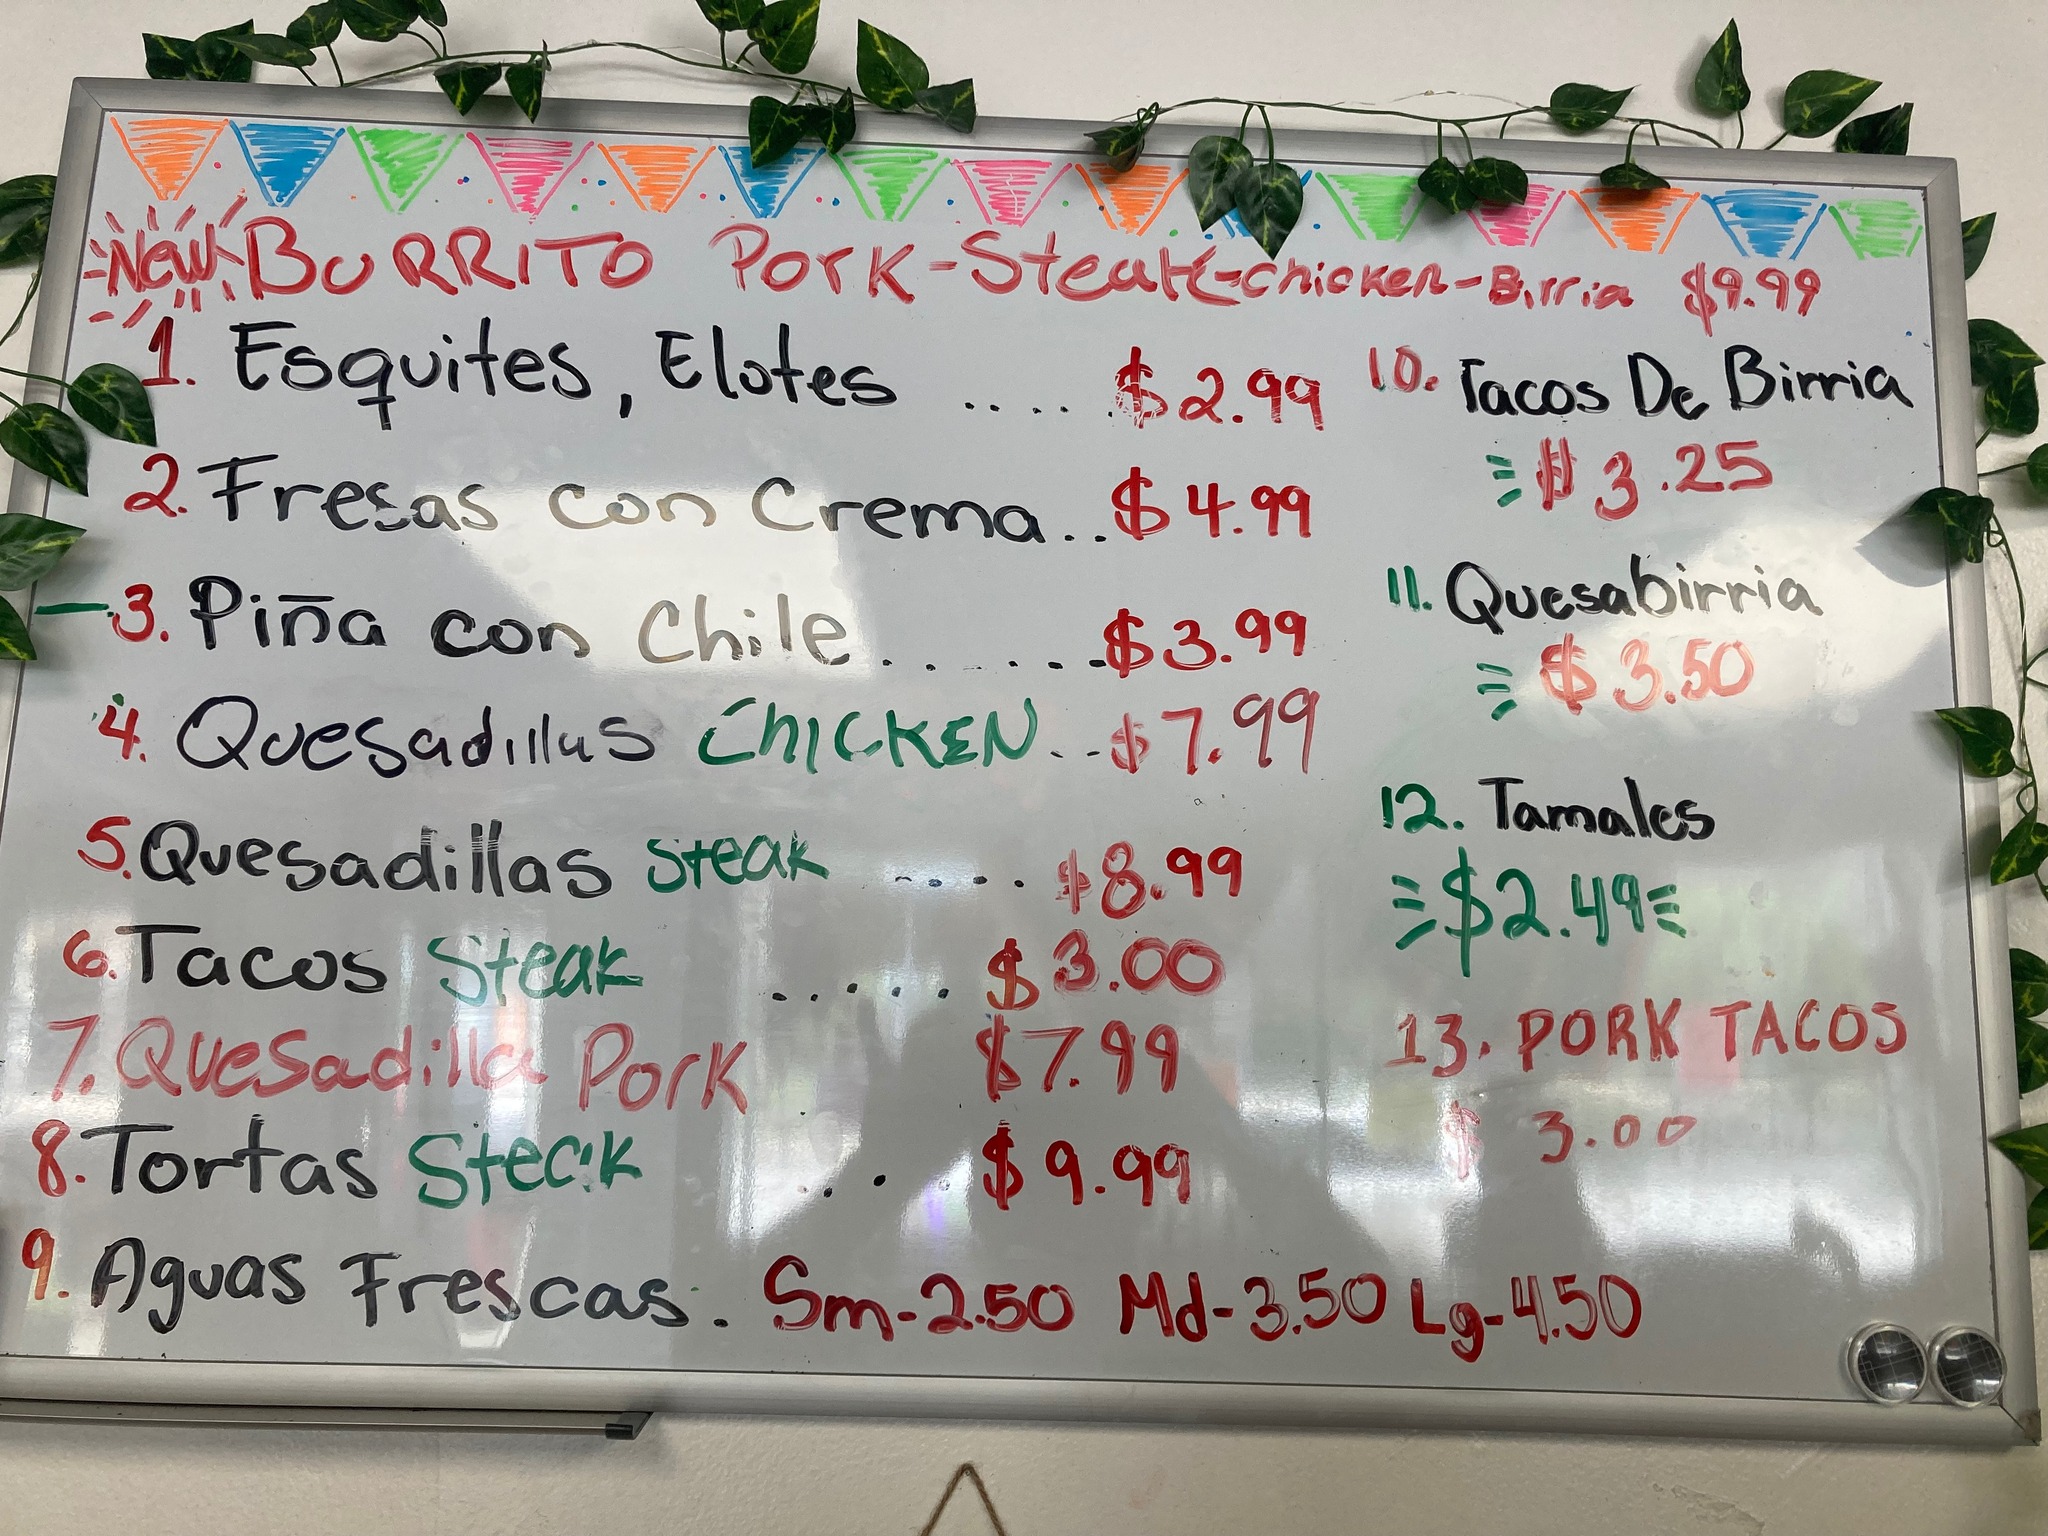 New BURRITO Pork-Steak-chicken-Birria $9.99
1. Esquites, Elotes ..... $2.99
2. Fresas con Crema.. $4.99
3. Piña con Chile ...... $3.99
4. Quesadillas CHICKEN... $7.99
5. Quesadillas steak .... $8.99
6. Tacos Steak ..... $3.00
7. Quesadilla Pork $7.99
8. Tortas Steak ... $9.99
9. Aguas Frescas. Sm-2.50 Md-3.50 Lg-4.50
10. Tacos De Birria
$3.25
11. Quesabirria
$3.50
12. Tamales
$2.49
13. PORK TACOS
$3.00